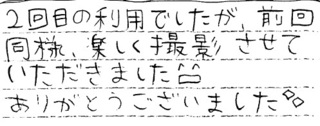 2回目の利用でしたが、前回
同様、楽しく撮影させて
いただきました
ありがとうございました